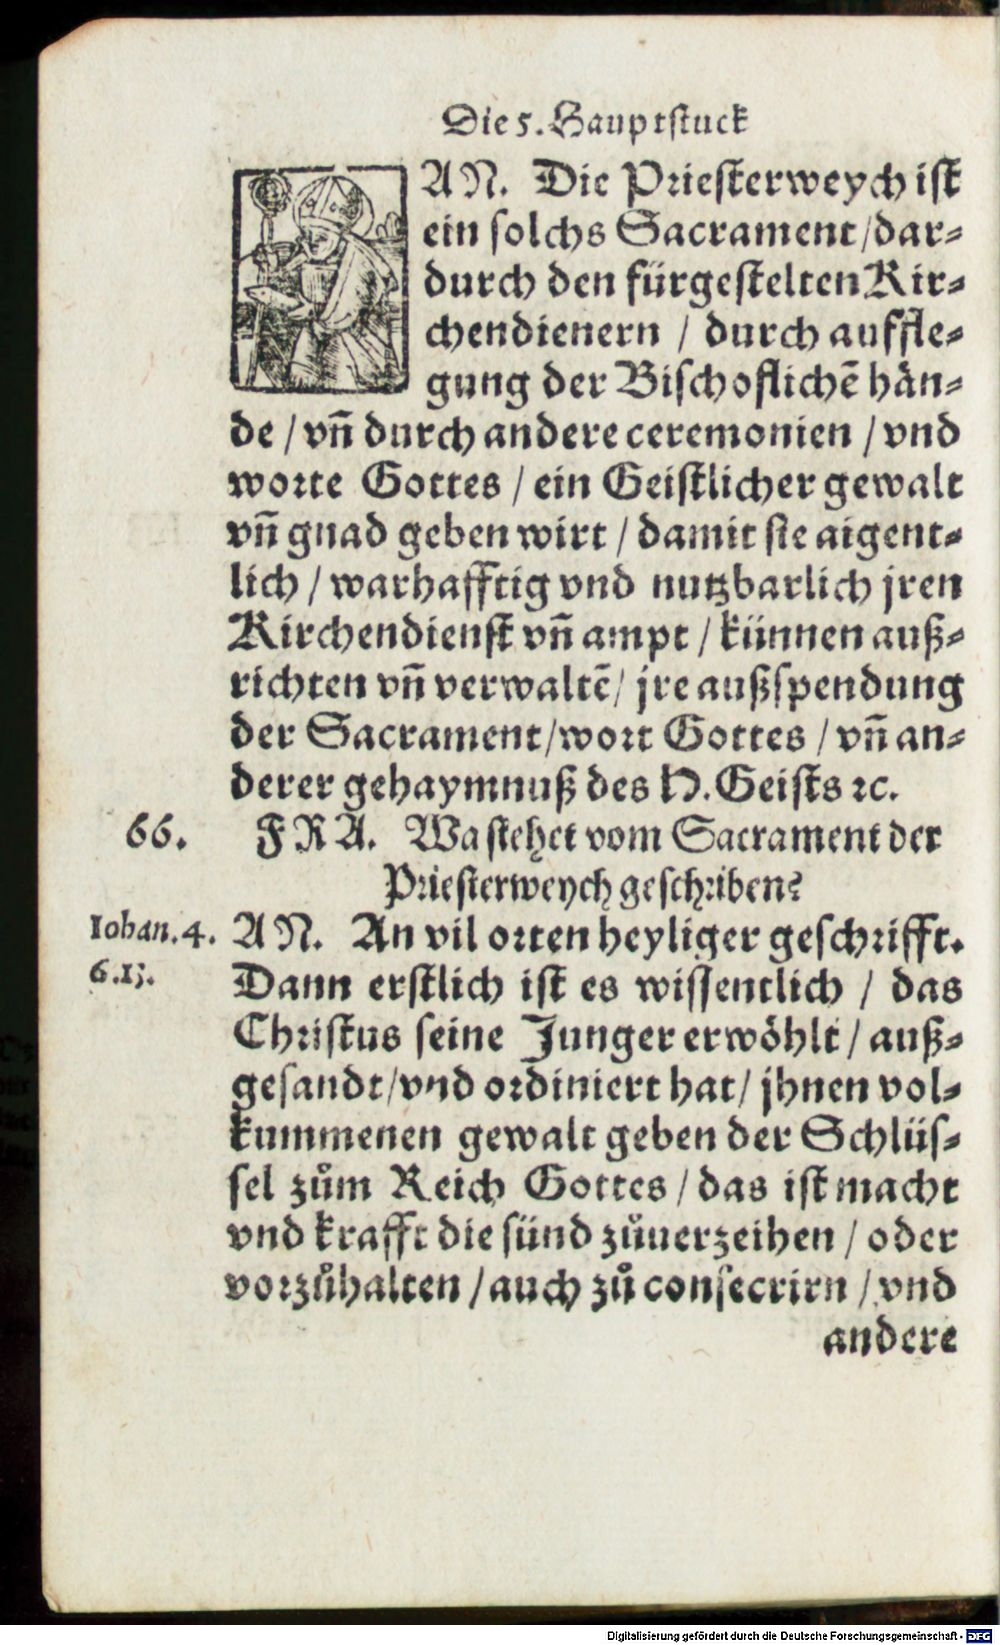 Die 5. Hauptstuck
AN. Die Priesterweych ist
ein solchs Sacrament / dar⸗
durch den fürgestelten Kir⸗
chendienern / durch auffle⸗
gung der Bischoflichẽ hän⸗
de / vñ durch andere ceremonien / vnd
worte Gottes / ein Geistlicher gewalt
vñ gnad geben wirt / damit sie aigent⸗
lich / warhafftig vnd nutzbarlich jren
Kirchendienst vñ ampt / künnen auß⸗
richten vñ verwaltẽ / jre außspendung
der Sacrament / wort Gottes / vñ an⸗
derer gehaymnuß des H. Geists ꝛc.
66. FRA. Wa stehet vom Sacrament der
Priesterweych geschriben?
Iohan. 4. AN. An vil orten heyliger geschrifft.
6.15. Dann erstlich ist es wissentlich / das
Christus seine Junger erwöhlt / auß⸗
gesandt / vnd ordiniert hat / jhnen vol⸗
kummenen gewalt geben der Schlüs⸗
sel zům Reich Gottes / das ist macht
vnd krafft die sünd zůuerzeihen / oder
vorzůhalten / auch zů consecrirn / vnd
andere
Digitalisierung gefördert durch die Deutsche Forschungsgemeinschaft - DFG